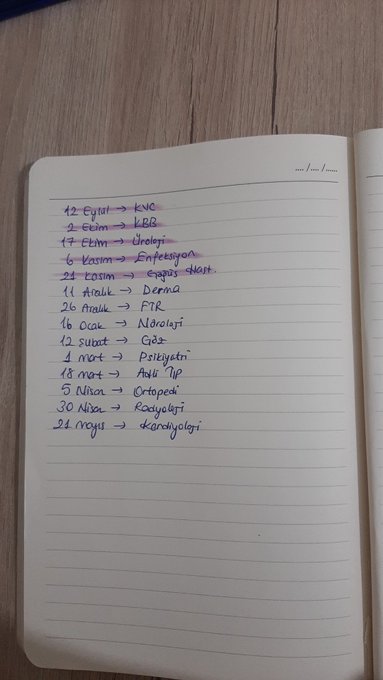 .... / .... / ......
12 Eylül → KVC
2 Ekim → KBB
17 Ekim → Üroloji
6 Kasım → Enfeksiyon
21 Kasım → Göğüs Hast.
11 Aralık → Derma
26 Aralık → FTR
16 Ocak → Nöroloji
12 Şubat → Göz
1 Mart → Psikiyatri
18 Mart → Adli Tıp
5 Nisan → Ortopedi
30 Nisan → Radyoloji
21 Mayıs → Kardiyoloji